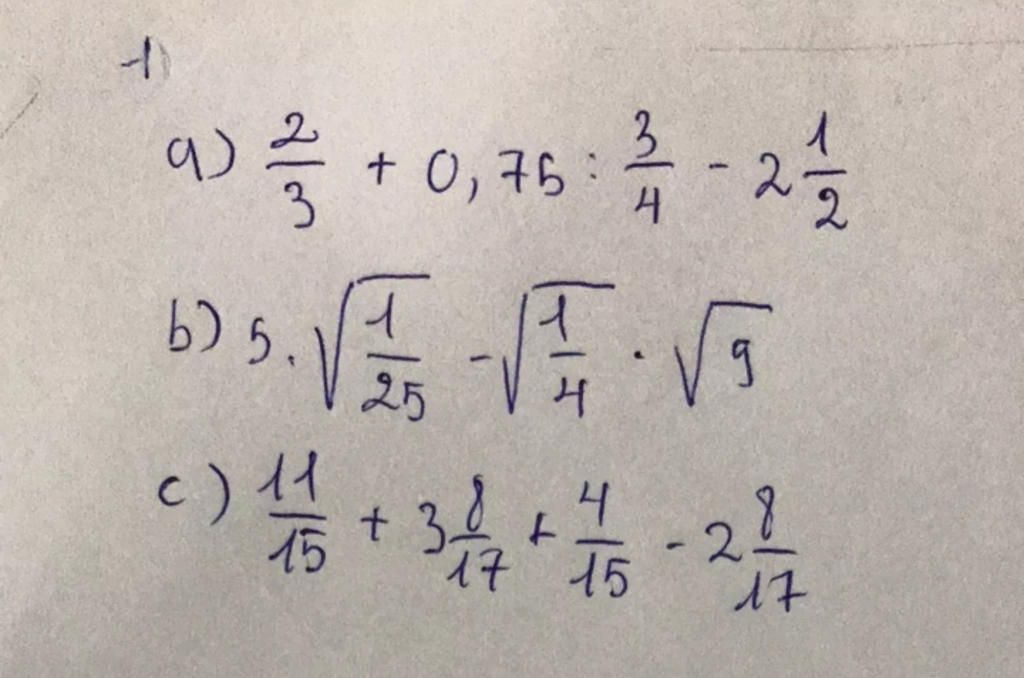 1)
a) 2/3 + 0,75 : 3/4 - 2 1/2
b) 5. √(1/25) - √(1/4) . √9
c) 11/15 + 3 8/17 + 4/15 - 2 8/17